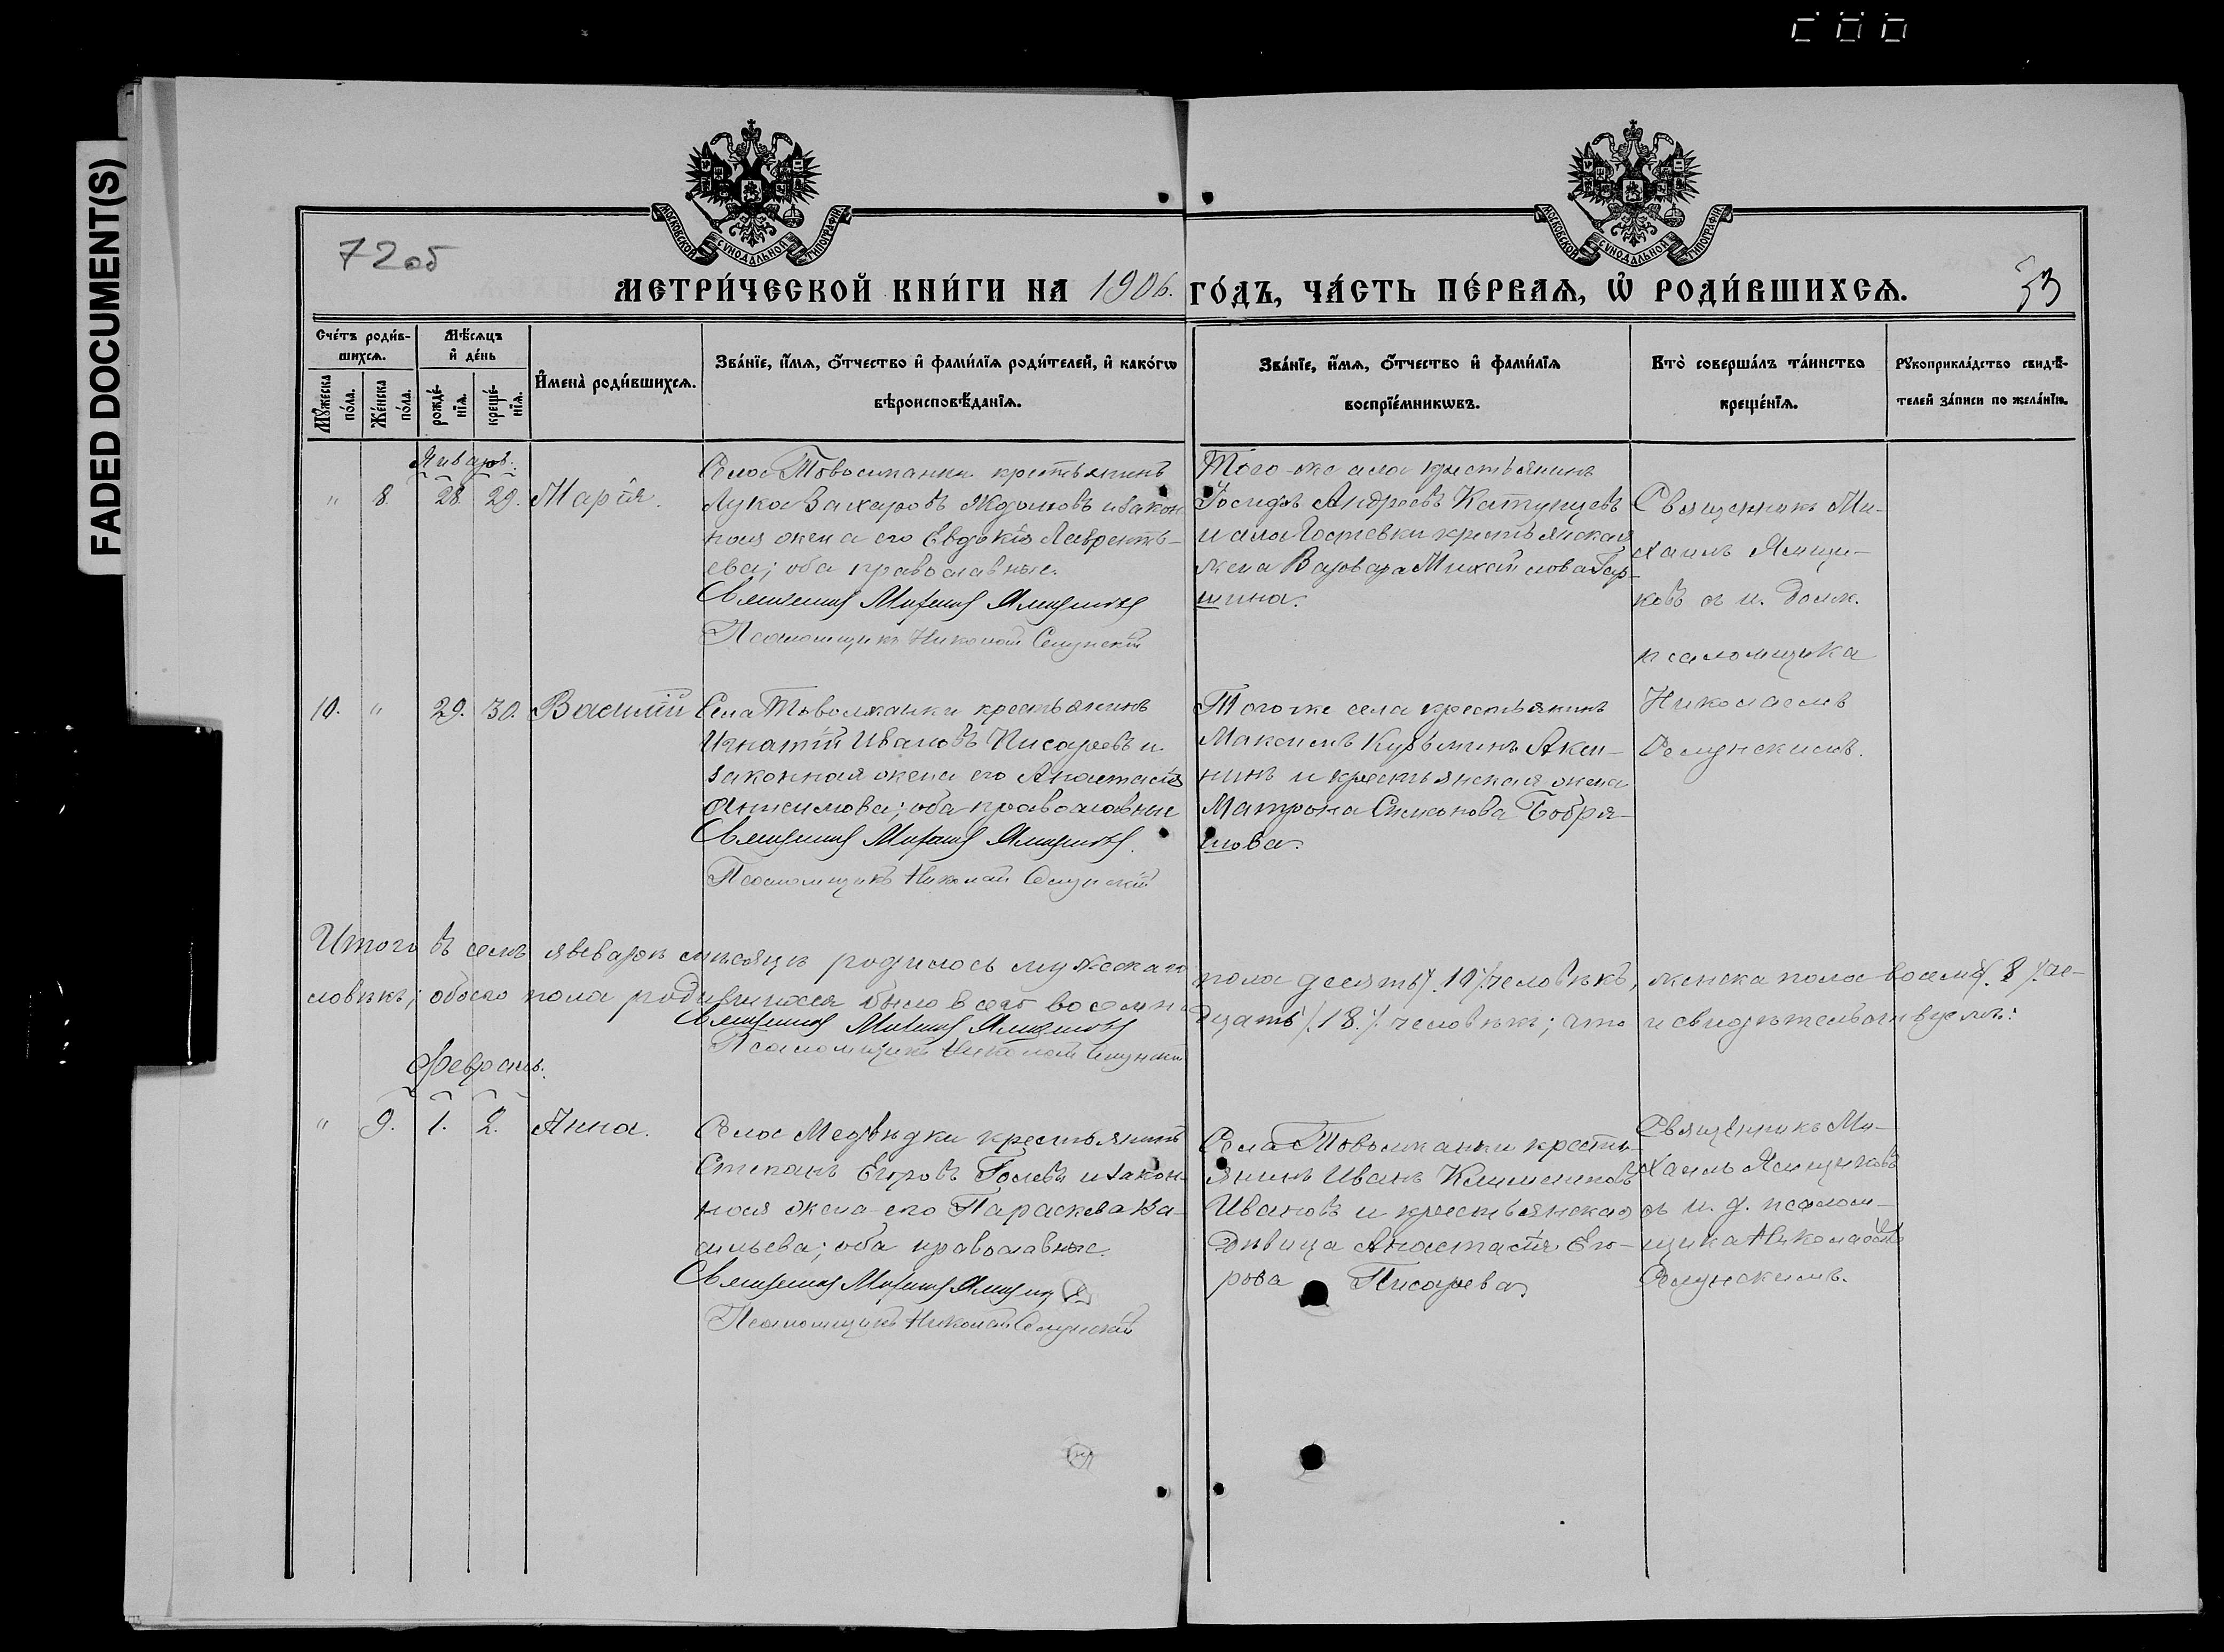 FADED DOCUMENT(S)
72об
МОСКОВСКОЙ СѴНОДАЛЬНОЙ ТИПОГРАФІИ
МОСКОВСКОЙ СѴНОДАЛЬНОЙ ТИПОГРАФІИ
МЕТРИ́ЧЕСКОЙ КНИ́ГИ НА 1906. ГО́ДЪ, ЧА́СТЬ ПЕ́РВАѦ, Ѡ҆ РОДИ́ВШИХСѦ.
Сче́тъ роди́в-
шихсѧ.
Мꙋ́жеска по́ла.
Же́нска по́ла.
Мѣ́сѧцъ
и҆ де́нь
рожде́-
нїѧ.
креще́-
нїѧ.
И҆мена̀ роди́вшихсѧ.
Зва́нїе, и҆́мѧ, ѻ҆́тчество и҆ фами́лїѧ роди́телей, и҆ како́гѡ
вѣроисповѣ́данїѧ.
Зва́нїе, и҆́мѧ, ѻ҆́тчество и҆ фами́лїѧ
воспрїе́мникѡвъ.
Кто̀ соверша́лъ та́инство
креще́нїѧ.
Рꙋкоприкла́дство свидѣ́-
телей за́писи по жела́нїю.
Январь.
" 8 28. 29. Марія.
Села Товолжанки крестьянинъ
Лука Захаровъ и закон
ная жена его Евдокія Лаврентъ-
ева; оба православные.
Священникъ Михаилъ Ямщиковъ
Псаломщикъ Николай
Того-же села крестьянинъ
Андреевъ Катунцевъ
и села крестьянская
жена Варвара Михайлова Гар-
шина.
Священникъ Ми-
хаилъ Ямщи-
ковъ съ и. долж.
псаломщика
Николаемъ
10. " 29. 30. Василій
Села Товолжанки крестьянинъ
Игнатій Ивановъ Писаревъ и
законная жена его Анастасія
Анисимова; оба православные
Священникъ Михаилъ Ямщиковъ.
Псаломщикъ Николай
Того же села крестьянинъ
Максимъ Кузьминъ
нинъ и крестьянская жена
Матрона Симонова
Итого въ семъ январѣ мѣсяцѣ родилось мужескаго пола десять /. 10 /. человѣкъ, женска пола восемь /. 8 /. че-
ловѣкъ; обоего пола родившихся было всего восемнадцать /. 18. /. человѣкъ; что и свидѣтельствуемъ:
Священникъ Михаилъ Ямщиковъ
Псаломщикъ Николай
Февраль.
" 9. 1. 2. Анна.
Села Медвѣдки крестьянинъ
Степанъ Егоровъ и закон-
ная жена его Параскева Ва-
сильева; оба православные.
Священникъ Михаилъ
Псаломщикъ Николай
Села Товолжанки кресть-
янинъ Иванъ
Ивановъ и крестьянская
дѣвица Анастасія Его-
рова Писарева
Священникъ Ми-
хаилъ Ямщиковъ
съ и. д. псалом-
щика Николаемъ